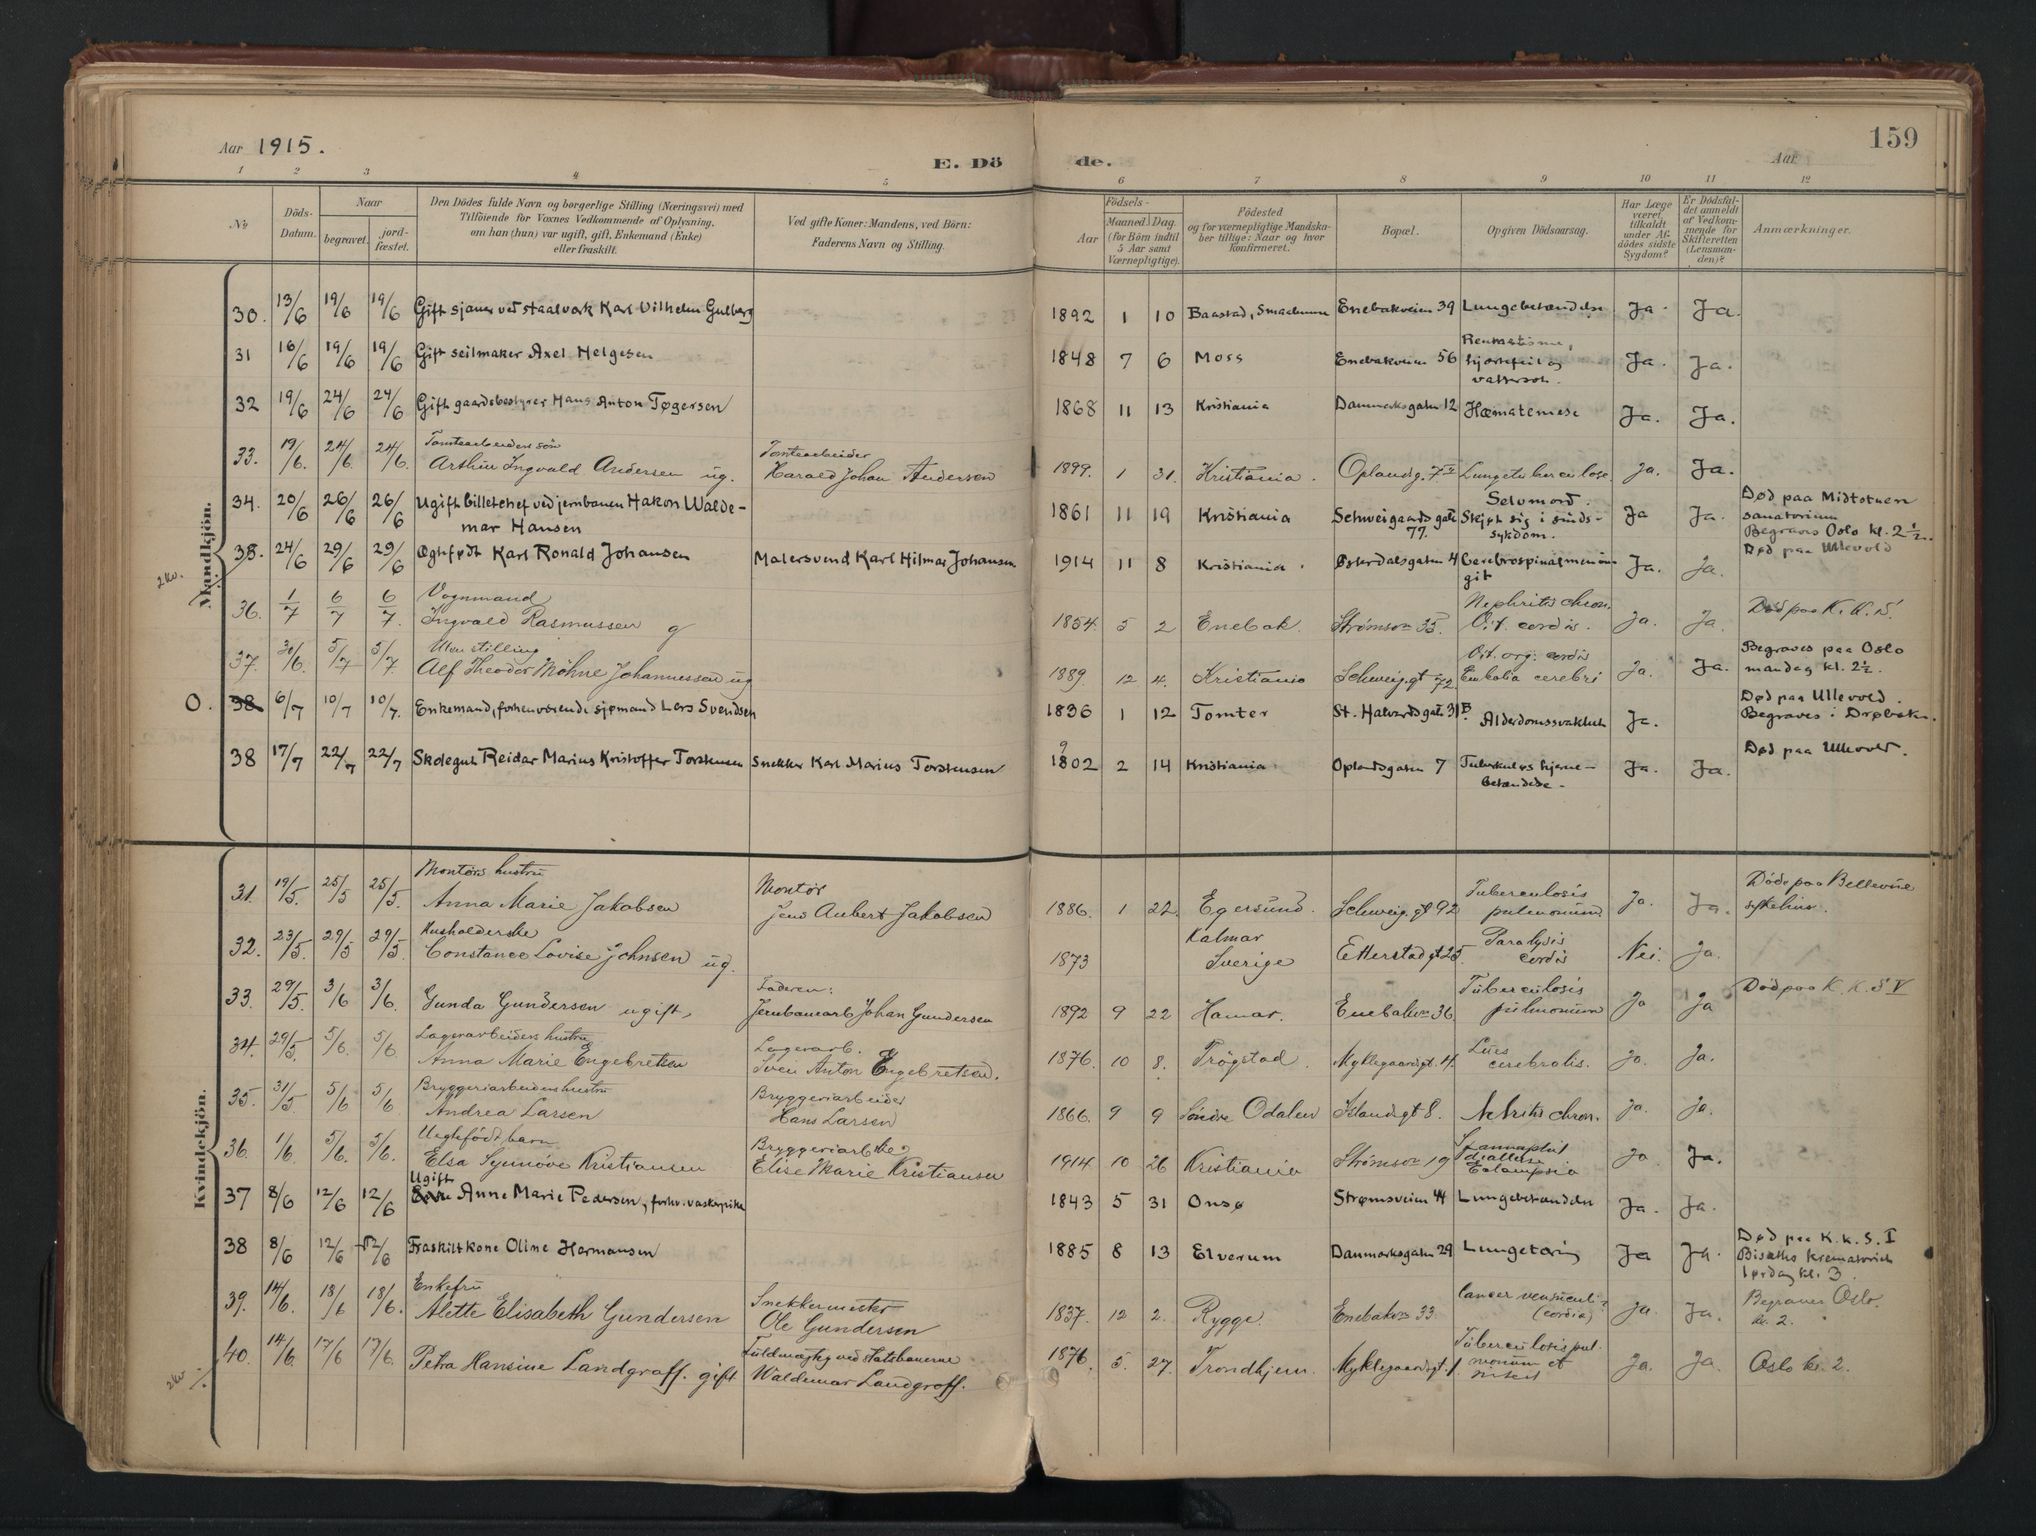 Aar 1915.
E. Dö de.
Aar
159
1 2 3 4 5 6 7 8 9 10 11 12
No
Döds-Datum.
Naar
begravet.
jord-fæstet.
Den Dödes fulde Navn og borgerlige Stilling (Næringsvei) med
Tilföiende for Voxnes Vedkommende af Oplysning,
om han (hun) var ugift, gift, Enkemand (Enke)
eller fraskilt.
Ved gifte Koner: Mandens, ved Börn:
Faderens Navn og Stilling.
Födsels-
Aar
Maaned.
Dag.
(for Börn indtil
5 Aar samt
Værnepligtige).
Födested
og for værnepligtige Mandska-
ber tillige: Naar og hvor
Konfirmeret.
Bopæl.
Opgiven Dödsaarsag.
Har Læge
været
tilkaldt
under Af-
dödes sidste
Sygdom?
Er Dödsfal-
det anmeldt
af Vedkom-
mende for
Skifteretten
(Lensman-
den)?
Anmærkninger.
Mandkjön.
30. 13/6 19/6 19/6 Gift sjauer ved staalverk Karl Vilhelm Gulberg 1892 1 10 Baastad, Smaalenene Enebakveien 39 Lungebetændelse Ja. Ja.
31 16/6 19/6 19/6 Gift seilmaker Axel Helgesen 1848 7 6 Moss Enebakveien 56 Reumatisme,
hjertefeil og
vattersot. Ja. Ja.
32 19/6 24/6 24/6 Gift gaardsbestyrer Hans Anton Tøgersen 1868 11 13 Kristiania Danmarksgaten 12 Hæmatemese Ja. Ja.
Tomtearbeiders søn Tomtearbeider
33. 19/6. 24/6. 24/6. Arthur Ingvald Andersen ug. Harald Johan Andersen 1899. 1 31. Kristiania. Oplandsg. 7 II Lungetuberculose. Ja. Ja.
34. 20/6 26/6 26/6 Ugift billetchef ved jernbanen Hakon Walde-
mar Hansen 1861 11 19 Kristiania Schweigaards gate
77. Selvmord.
Skjøt sig i sinds-
sykdom. Ja Ja. Død paa Midtstuen
sanatorium
Begraves Oslo kl. 2 1/2.
38. 24/6 29/6 29/6 Ægtefødt Karl Ronald Johansen Malersvend Karl Hilmar Johansen 1914 11 8 Kristiania. Østerdalsgaten 4 Cerebrospinalmenin-
git Ja. Ja. Død paa Ullevold
2 kv.
Vognmand
36. 1/7 6/7 6/7. Ingvald Rasmussen g 1854. 5 2 Enebak. Strømsvn 35. Nephritis chron.
Vit. cordis. Ja. Ja. Død paa K. K. S.
Uten stilling
37. 30/6. 5/7 5/7 Alf Theodor Möhne Johannessen ug 1889. 12 4. Kristiania Schweig.gt 72. Vit. org. cordis
Embolia cerebri Ja. Ja. Begraves paa Oslo
mandag kl. 2 1/2.
O. 38 6/7 10/7 10/7. Enkemand, forhenværende sjømand Lars Svendsen 1836 1 12 Tomter St. Halvards gate 31 B. Alderdomssvakhet Ja. Død paa Ullevold.
Begraves i Drøbak.
38 17/7 22/7 22/7 Skolegut Reidar Marius Kristoffer Torstensen Snekker Karl Marius Torstensen 9
1802 2 14 Kristiania Oplandsgaten 7 Tuberkuløs hjerne-
betændelse- Ja. Ja. Død paa Ullevold.
Kvindekjön.
Montörs hustru Montör
31. 19/5. 25/5 25/5. Anna Marie Jakobsen Jens Aubert Jakobsen 1886. 1 22. Egersund. Schweig. gt 92 Tuberculosis
pulmonum Ja. Ja. Döde paa Bellevue
sykehus.
Husholderske
32. 23/5. 29/5 29/5. Constance Lovise Johnsen ug. 1873 Kalmar
Sverige Etterstadgt 25. Paralysis
cordis Nei. Ja.
33. 29/5 3/6 3/6. Gunda Gundersen ugift, Faderen:
Jernbanearb Johan Gundersen 1892 9 22 Hamar. Enebakvn 36. Tuberculosis
pulmonum Ja Ja Död paa K. K. S V
Lagerarbeiders hustru Lagerarb.
34. 29/5. 5/6. 5/6. Anna Marie Engebretsen Sven Anton Engebretsen. 1876. 10 8. Trögstad. Myklegaardsgt. 4. Lues
cerebralis. Ja. Ja.
Bryggeriarbeiders hustru Bryggeriarbeider
35. 31/5. 5/6 5/6 Andrea Larsen Hans Larsen 1866. 9 9 Söndre Odalen Islandsgt 8. Nefritis chron. Ja. Ja.
Uegtefödt barn Bryggeriarbske
36. 1/6. 5/6. 5/6. Elsa Synnöve Kristiansen Elise Marie Kristiansen 1914. 10 26 Kristiania Strømsvn 19 Eclampsia Ja Ja.
Ugift
37 8/6 12/6 12/6 Anne Marie Pedersen, forhv. vaskepike 1843 5 31 Onsø Strømsveien 44 Lungebetændelse Ja. Ja.
38 8/6 12/6 12/6 Fraskilt kone Oline Hermansen 1885 8 13 Elverum Danmarksgaten 29 Lungetæring Ja Ja. Død paa K. k. S. I
Bisættes krematoriet
lørdag kl. 3.
Enkefru Snekkermester
39. 14/6. 18/6 18/6. Alette Elisabeth Gundersen Ole Gundersen 1837. 12 2. Rygge. Enebakvn 33. Cancer ventriculi?
(cordia) Ja. Ja. Begraves Oslo.
kl. 2.
40. 14/6. 17/6 17/6. Petra Hansine Landgraff. gift Fuldmægtig ved statsbanerne
Waldemar Landgraff. 1876. 5. 27. Trondhjem. Myklegaardsgt. 1. Tuberculosis pul-
monum et Ja. Ja. Oslo kl. 2.
2 kv